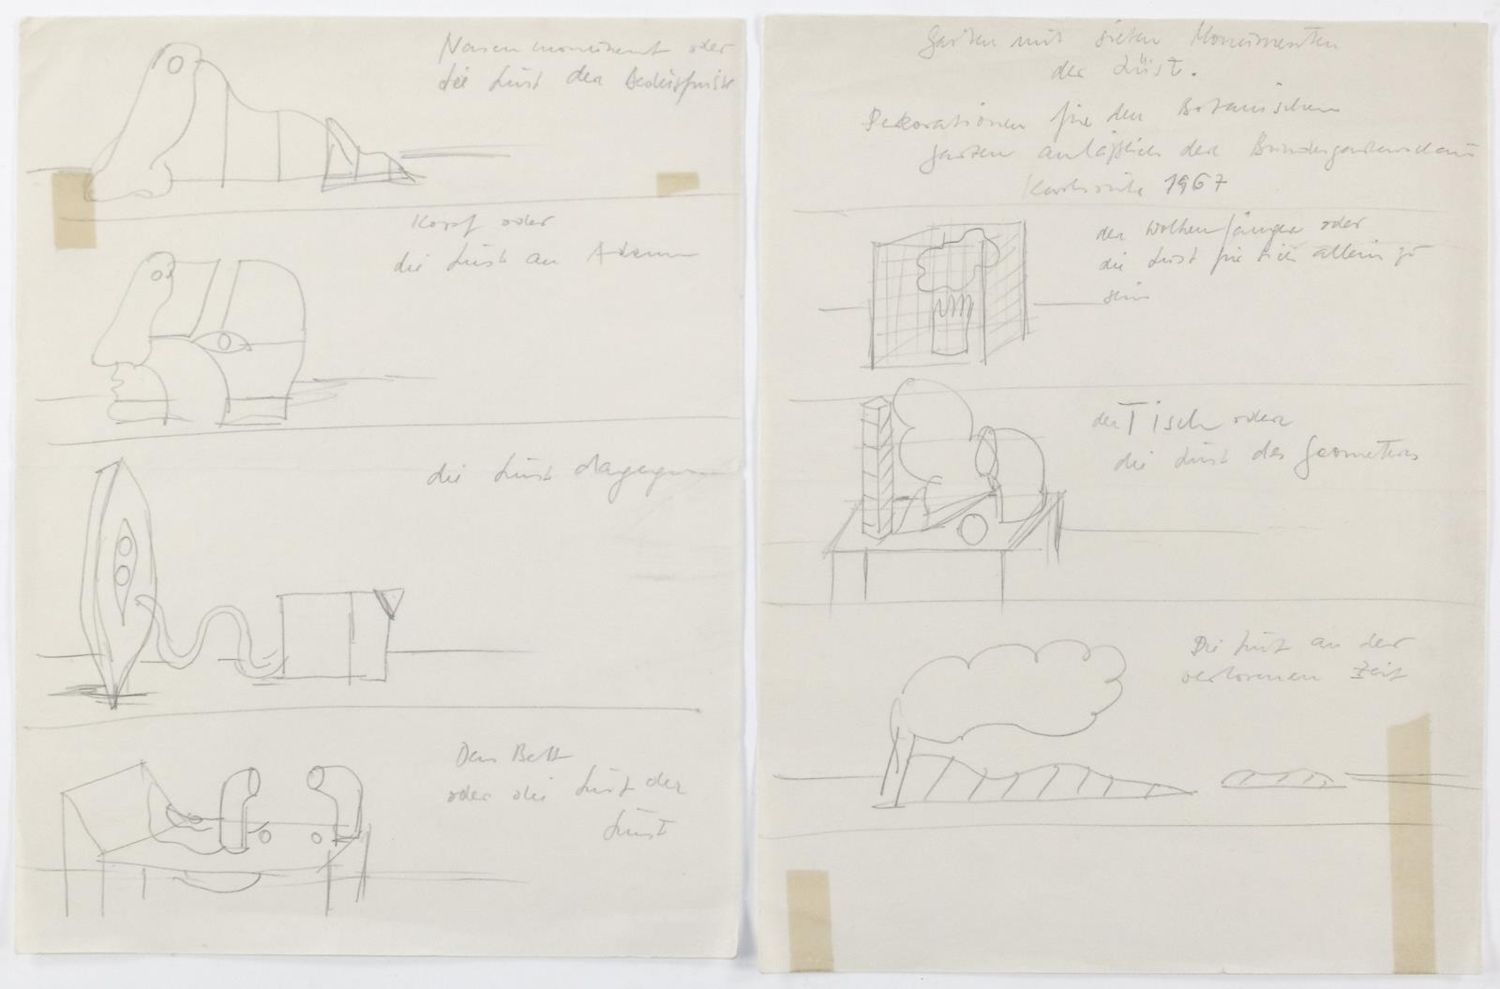 Nasenmonument oder
die Lust der Bedürfnisse
Kopf oder
die Lust an
die Lust dagegen
Das Bett
oder die Lust der
Lust
Garten mit sieben Monumenten
der Lüste.
Dekorationen für den Botanischen
Garten anläßlich der Bundesgartenschau
Karlsruhe 1967
der Wolkenfänger oder
die Lust für sich allein zu
sein
der Tisch oder
die Lust des Geometers
Die Lust an der
verlorenen Zeit